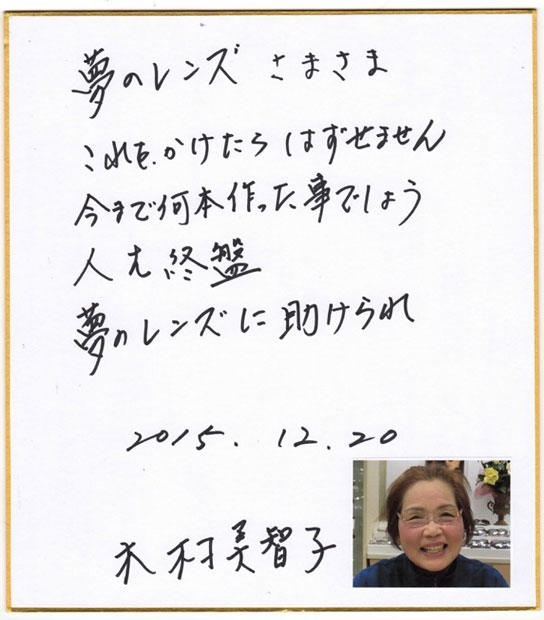 夢のレンズ さまさま
これを、かけたら はずせません
今まで何本作った事でしょう
人も 終盤
夢のレンズに 助けられ
2015. 12. 20
木村美智子